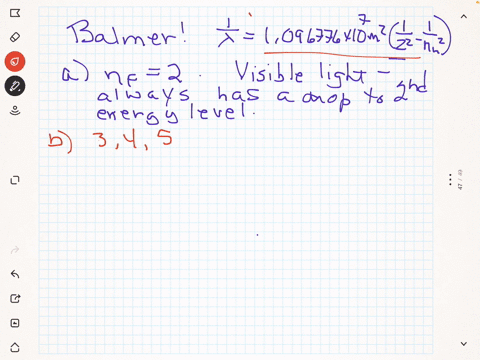 Balmer! 1/λ = 1.096776×10⁷m² (1/2² - 1/nₘ²)
a) nF = 2. Visible light - always has a drop to 2nd energy level.
b) 3, 4, 5